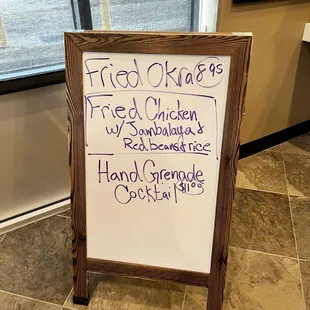 Fried Okra 8.95
Fried Chicken
w/ Jambalaya &
Red beans & rice
Hand Grenade
Cocktail